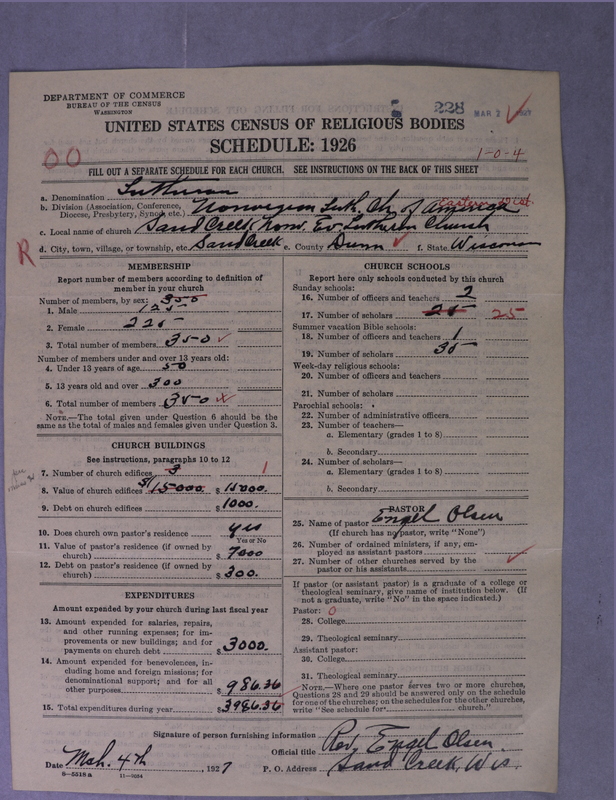 DEPARTMENT OF COMMERCE
BUREAU OF THE CENSUS
WASHINGTON
228
MAR 7 1927
UNITED STATES CENSUS OF RELIGIOUS BODIES
SCHEDULE: 1926
00
1-0-4
FILL OUT A SEPARATE SCHEDULE FOR EACH CHURCH. SEE INSTRUCTIONS ON THE BACK OF THIS SHEET
a. Denomination Lutheran
b. Division (Association, Conference, Diocese, Presbytery, Synod, etc.) Norwegian Luth. Ch. of America Eastern
c. Local name of church Sand Creek Norw. Ev. Lutheran Church
d. City, town, village, or township, etc. Sand Creek e. County Dunn f. State Wisconsin
R
MEMBERSHIP
Report number of members according to definition of
member in your church
Number of members, by sex: 350
1. Male 125
2. Female 225
3. Total number of members 350
Number of members under and over 13 years old:
4. Under 13 years of age 50
5. 13 years old and over 300
6. Total number of members 350
NOTE.—The total given under Question 6 should be the
same as the total of males and females given under Question 3.
CHURCH BUILDINGS
See instructions, paragraphs 10 to 12
7. Number of church edifices 3 1
8. Value of church edifices $15000 $ 15000.
9. Debt on church edifices $ 1000.
10. Does church own pastor's residence yes
Yes or No
11. Value of pastor's residence (if owned by
church) $ 7000
12. Debt on pastor's residence (if owned by
church) $ 300.
EXPENDITURES
Amount expended by your church during last fiscal year
13. Amount expended for salaries, repairs,
and other running expenses; for im-
provements or new buildings; and for
payments on church debt $ 3000.
14. Amount expended for benevolences, in-
cluding home and foreign missions; for
denominational support; and for all
other purposes $ 986.36
15. Total expenditures during year $ 3986.36
CHURCH SCHOOLS
Report here only schools conducted by this church
Sunday schools:
16. Number of officers and teachers 2
17. Number of scholars 25 25
Summer vacation Bible schools:
18. Number of officers and teachers 1
19. Number of scholars 35
Week-day religious schools:
20. Number of officers and teachers
21. Number of scholars
Parochial schools:
22. Number of administrative officers
23. Number of teachers—
a. Elementary (grades 1 to 8)
b. Secondary
24. Number of scholars—
a. Elementary (grades 1 to 8)
b. Secondary
PASTOR
25. Name of pastor Engel Olsen
(If church has no pastor, write "None")
26. Number of ordained ministers, if any, em-
ployed as assistant pastors
27. Number of other churches served by the
pastor or his assistants
If pastor (or assistant pastor) is a graduate of a college or
theological seminary, give name of institution below. (If
not a graduate, write "No" in the space indicated.)
Pastor: 0
28. College
29. Theological seminary
Assistant pastor:
30. College
31. Theological seminary
NOTE.—Where one pastor serves two or more churches,
Questions 28 and 29 should be answered only on the schedule
for one of the churches; on the schedules for the other churches,
write "See schedule for church."
Signature of person furnishing information Rev. Engel Olsen
Official title
Date Mch. 4th 1927 P. O. Address Sand Creek, Wis.
8—5518 a 11—9034